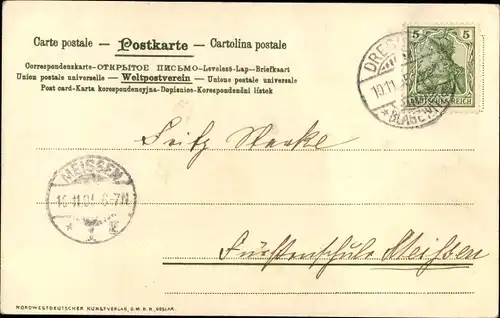 Carte postale – Postkarte – Cartolina postale
Correspondenzkarte–ОТКРЫТОЕ ПИСЬМО–Levelező-Lap–Briefkaart
Union postale universelle – Weltpostverein – Unione postale universale
Post card-Karta korespondencyjna-Dopisnice-Korespondenční lístek
5 5
DEUTSCHES REICH
DRES
10.11
* BLASEW
Fritz Starke
MEISSEN
6-7N
* 1 *
Fürstenschule Meissen
NORDWESTDEUTSCHER KUNSTVERLAG, G.M.B.H., GOSLAR.